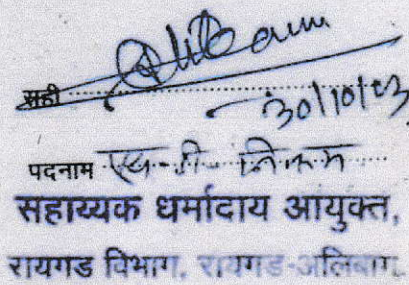 सही
30/10/03
पदनाम एच. जी. निकम
सहाय्यक धर्मादाय आयुक्त,
रायगड विभाग, रायगड-अलिबाग.